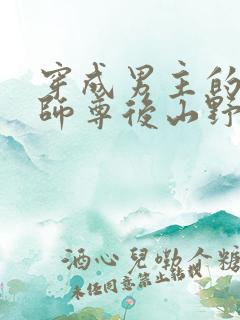 穿成男主的
師尊後山野
酒心兒嘞个糖
未经同意禁止转载